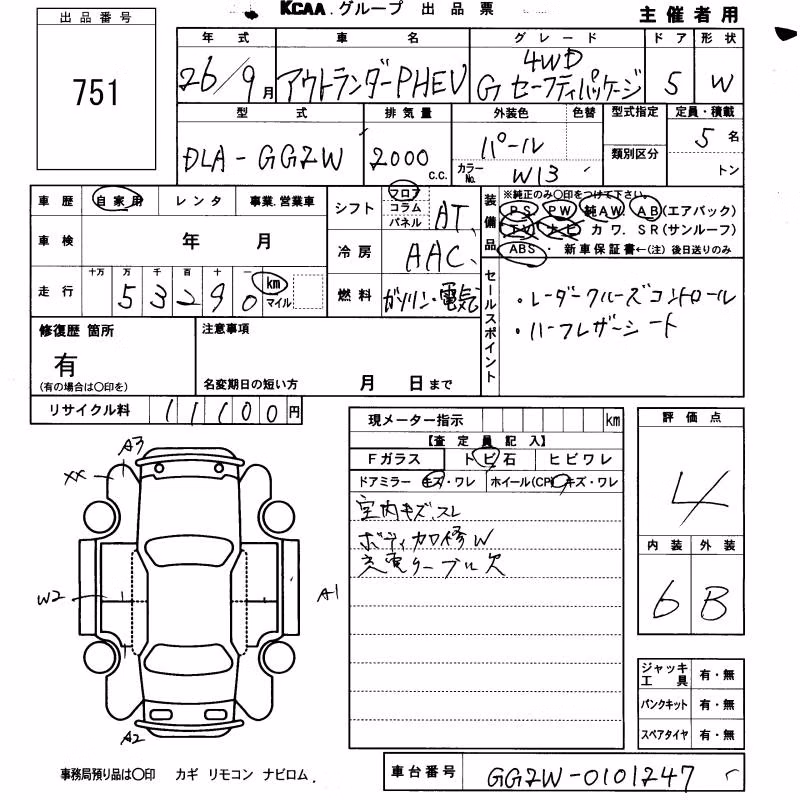 KCAA.グループ 出品票
主催者用
出品番号
751
年式 車名 グレード ドア 形状
26/9月 アウトランダーPHEV 4WD Gセーフティパッケージ 5 W
型式 排気量 外装色 色替 型式指定 定員・積載
DLA-GG2W 2000c.c. パール 類別区分 5名
カラーNo. W13 トン
車歴 自家用 レンタ 事業.営業車
車検 年 月
走行 十万 万 千 百 十 一
53290 km マイル
シフト フロア コラム パネル AT
冷房 AAC
燃料 ガソリン・電気
装備品 ※純正のみ〇印をつけて下さい。
PS. PW. 純AW. AB(エアバック)
TV. ナビ カワ. SR(サンルーフ)
ABS・ 新車保証書←(注)後日送りのみ
セールスポイント
・レーダークルーズコントロール
・ハーフレザーシート
修復歴 箇所
有
(有の場合は〇印を)
注意事項
名変期日の短い方 月 日まで
リサイクル料 11100円
現メーター指示 km
【査定員記入】
Fガラス トビ石 ヒビワレ
ドアミラー キズ・ワレ ホイール(CP) キズ・ワレ
室内キズ、スレ
ボディカロ修W
充電ケーブル欠
評価点
4
内装 外装
6 B
A3
XX
W2
A1
A2
ジャッキ工具 有・無
パンクキット 有・無
スペアタイヤ 有・無
事務局預り品は〇印 カギ リモコン ナビロム.
車台番号 GG2W-0101247